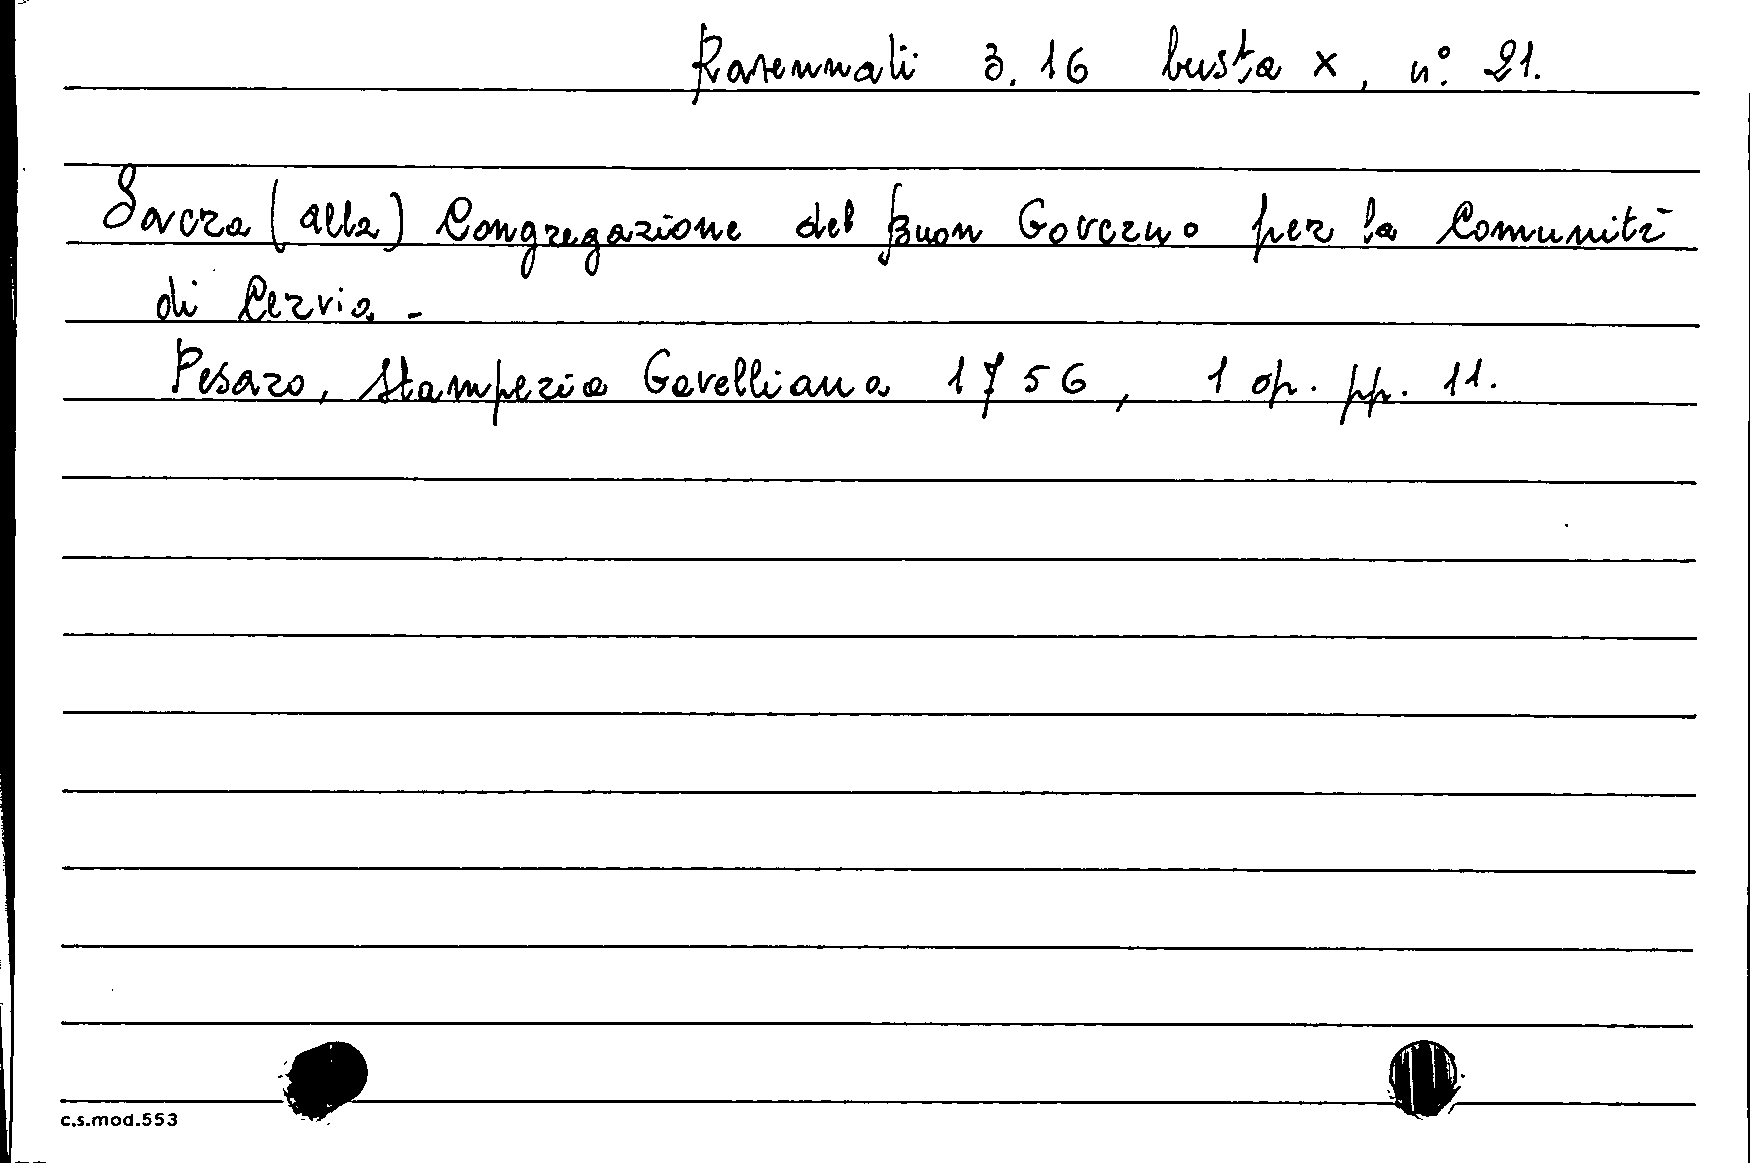 Ravennati 3.16 busta x, n° 21.
Sacra (alla) Congregazione del Buon Governo per la Comunità
di Cervia -
Pesaro, Stamperia Gavelliana 1756, 1 op. pp. 11.
c.s.mod.553